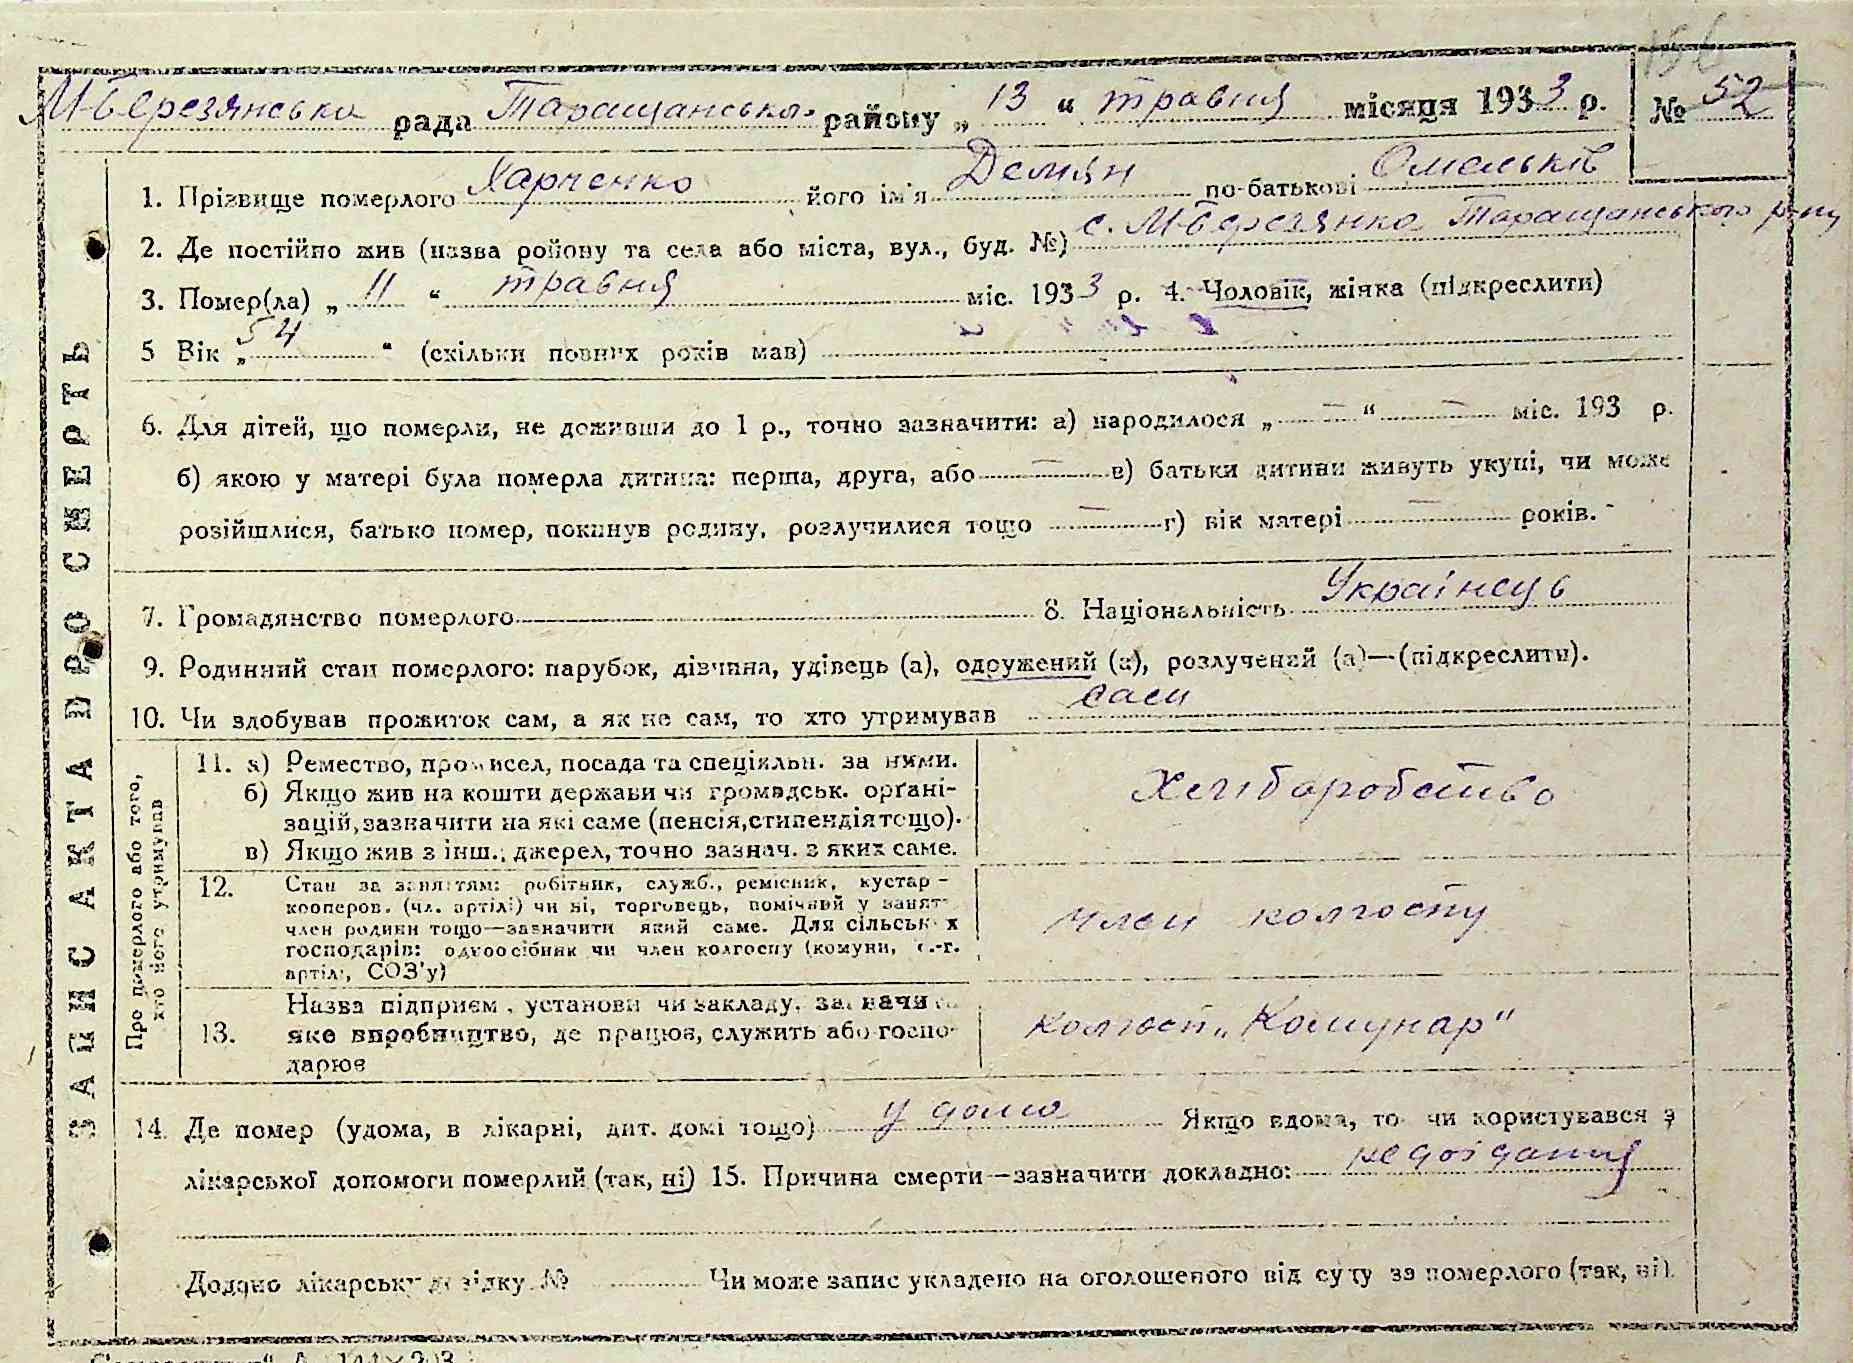 М-Березянська рада Таращанськ. району „ 13 “ травня місяця 1933 р. № 52
1. Прізвище померлого Харченко його ім'я Демян по-батькові Омельків
2. Де постійно жив (назва ройону та села або міста, вул., буд. №) с. М-Березянка Таращанського р-ну
3. Помер(ла) „ 11 “ травня міс. 1933 р. 4. Чоловік, жінка (підкреслити)
5 Вік „ 54 “ (скільки повних років мав)
6. Для дітей, що померли, не доживши до 1 р., точно зазначити: а) народилося „ — “ — міс. 193 р.
б) якою у матері була померла дитина: перша, друга, або — в) батьки дитини живуть укупі, чи може
розійшлися, батько помер, покинув родину, розлучилися тощо — г) вік матері — років.
7. Громадянство померлого 8. Національність Українець
9. Родинний стан померлого: парубок, дівчина, удівець (а), одружений (а), розлучений (а)—(підкреслити).
10. Чи здобував прожиток сам, а як не сам, то хто утримував сам
ЗАПИС АКТА ПРО СМЕРТЬ
Про померлого або того,
хто його утримував
11. а) Ремество, промисел, посада та спеціяльн. за ними.
б) Якщо жив на кошти держави чи громадськ. орґані-
зацій, зазначити на які саме (пенсія, стипендія тощо).
в) Якщо жив з інш. джерел, точно зазнач. з яких саме.
Хліборобство
12. Стан за заняттям: робітник, служб., ремісник, кустар -
кооперов. (чл. артілі) чи ні, торговець, помічний у занят.
член родини тощо—зазначити який саме. Для сільських
господарів: одноосібник чи член колгоспу (комуни, с.-г.
артілі, СОЗ'у)
член колгоспу
13. Назва підприєм., установи чи закладу, зазначити
яке виробництво, де працює, служить або госпо-
дарює
колгосп „Комунар"
14. Де помер (удома, в лікарні, дит. домі тощо) у дома Якщо вдома, то чи користувався з
лікарської допомоги померлий (так, ні) 15. Причина смерти—зазначити докладно: недоїдання
Додано лікарську довідку № Чи може запис укладено на оголошеного від суду за померлого (так, ні).